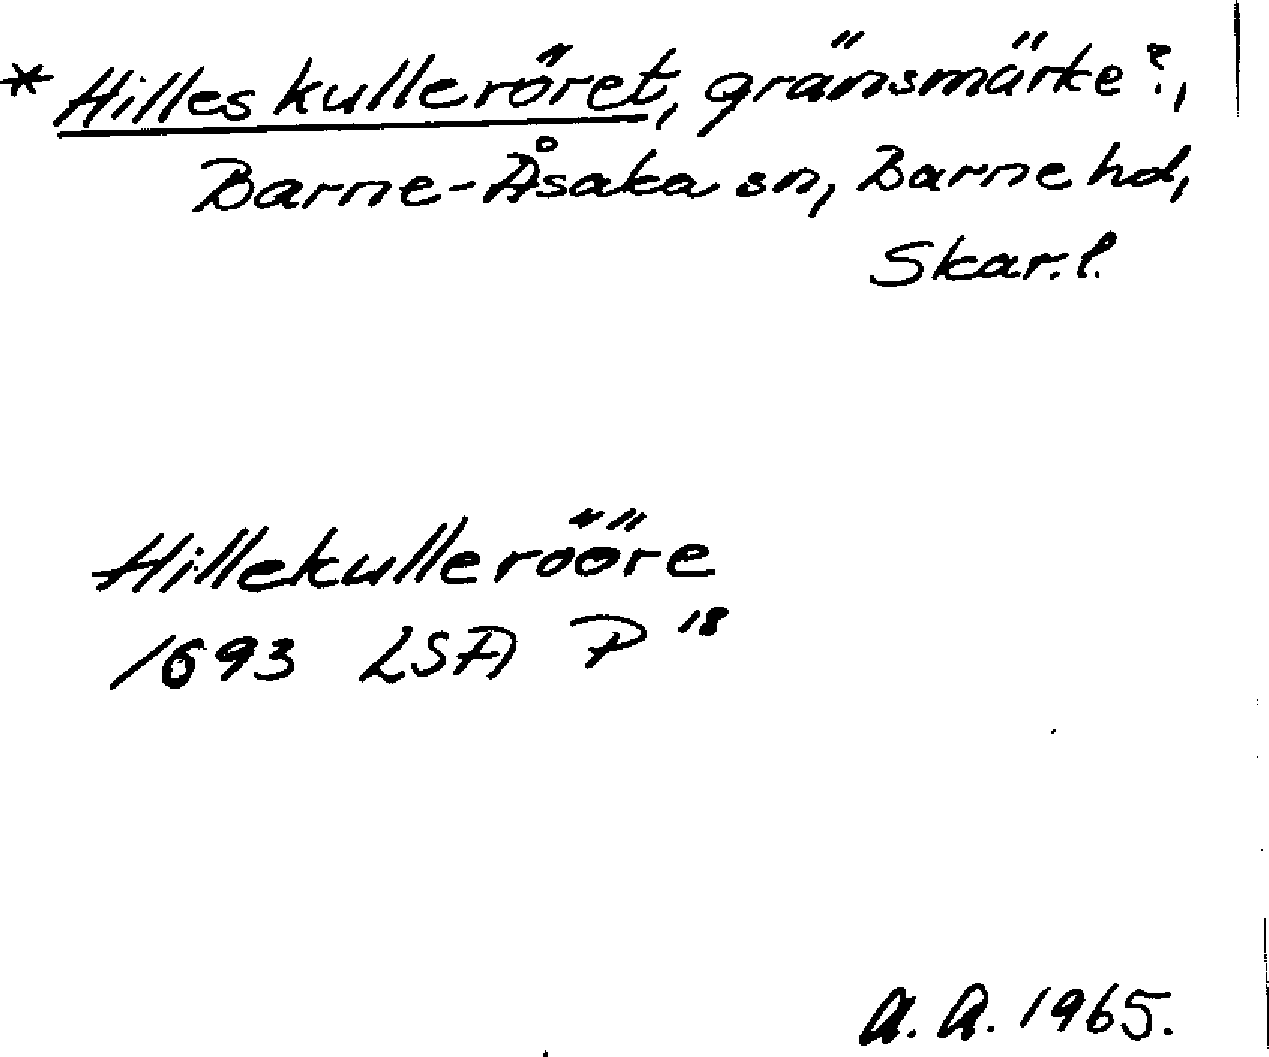 * Hilles kulleröret, gränsmärke?,
Barne-Åsaka sn, Barne hd,
Skar. l.
Hillekullerööre
1693 LSA P 18
A. A. 1965.